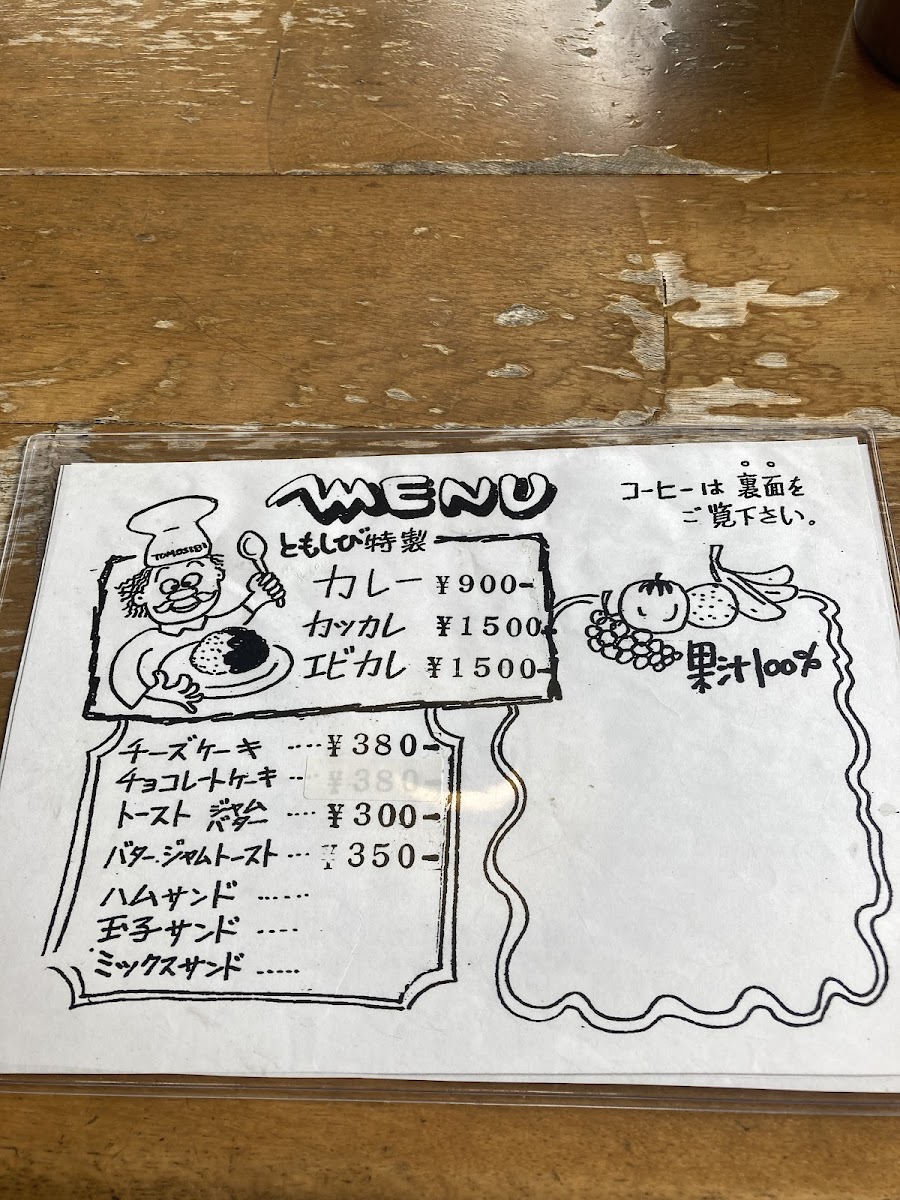 MENU
コーヒーは裏面を
ご覧下さい。
TOMOSIBI
ともしび特製
カレー ¥900-
カッカレ ¥1500-
エビカレ ¥1500-
果汁100%
チーズケーキ ····¥380-
チョコレートケーキ ··· ¥380-
トースト ジャム バター ····¥300-
バター·ジャムトースト ···¥350-
ハムサンド ······
玉子サンド ····
ミックスサンド ·····